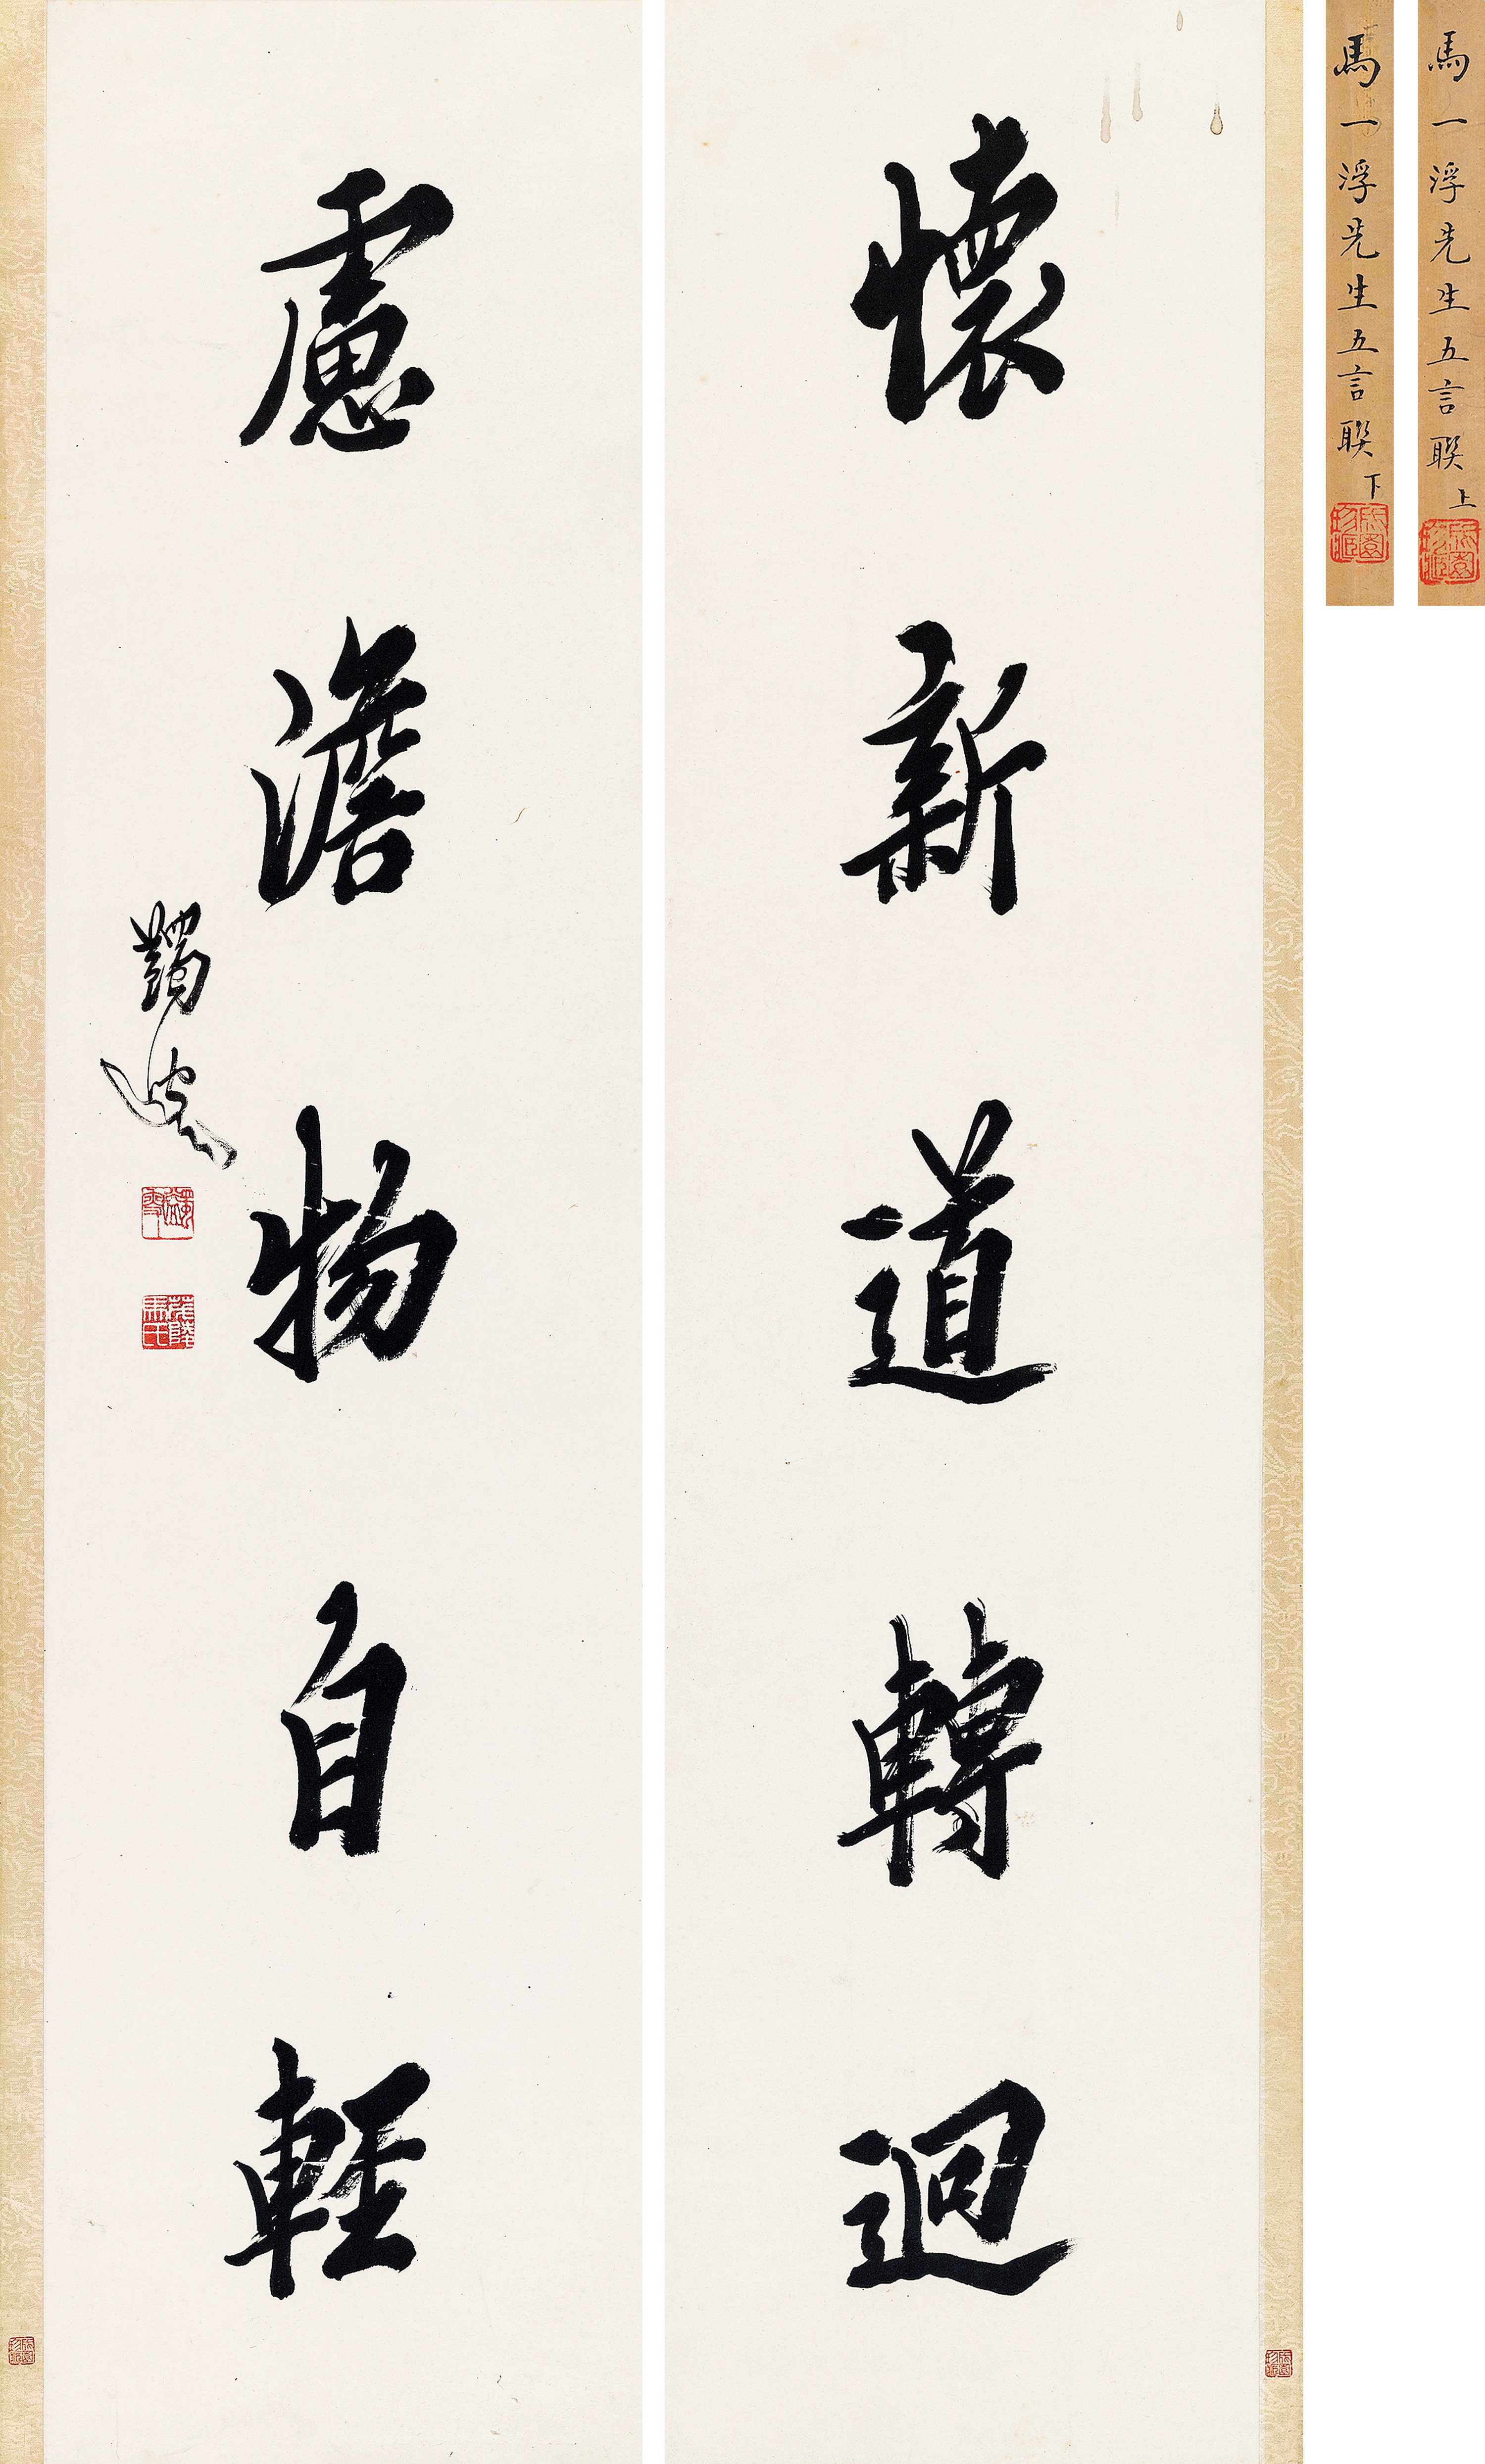 馬一浮先生五言聯上
馬一浮先生五言聯下
懷新道轉迥
慮澹物自輕
蠲叟
蠲叟
茂陵馬氏